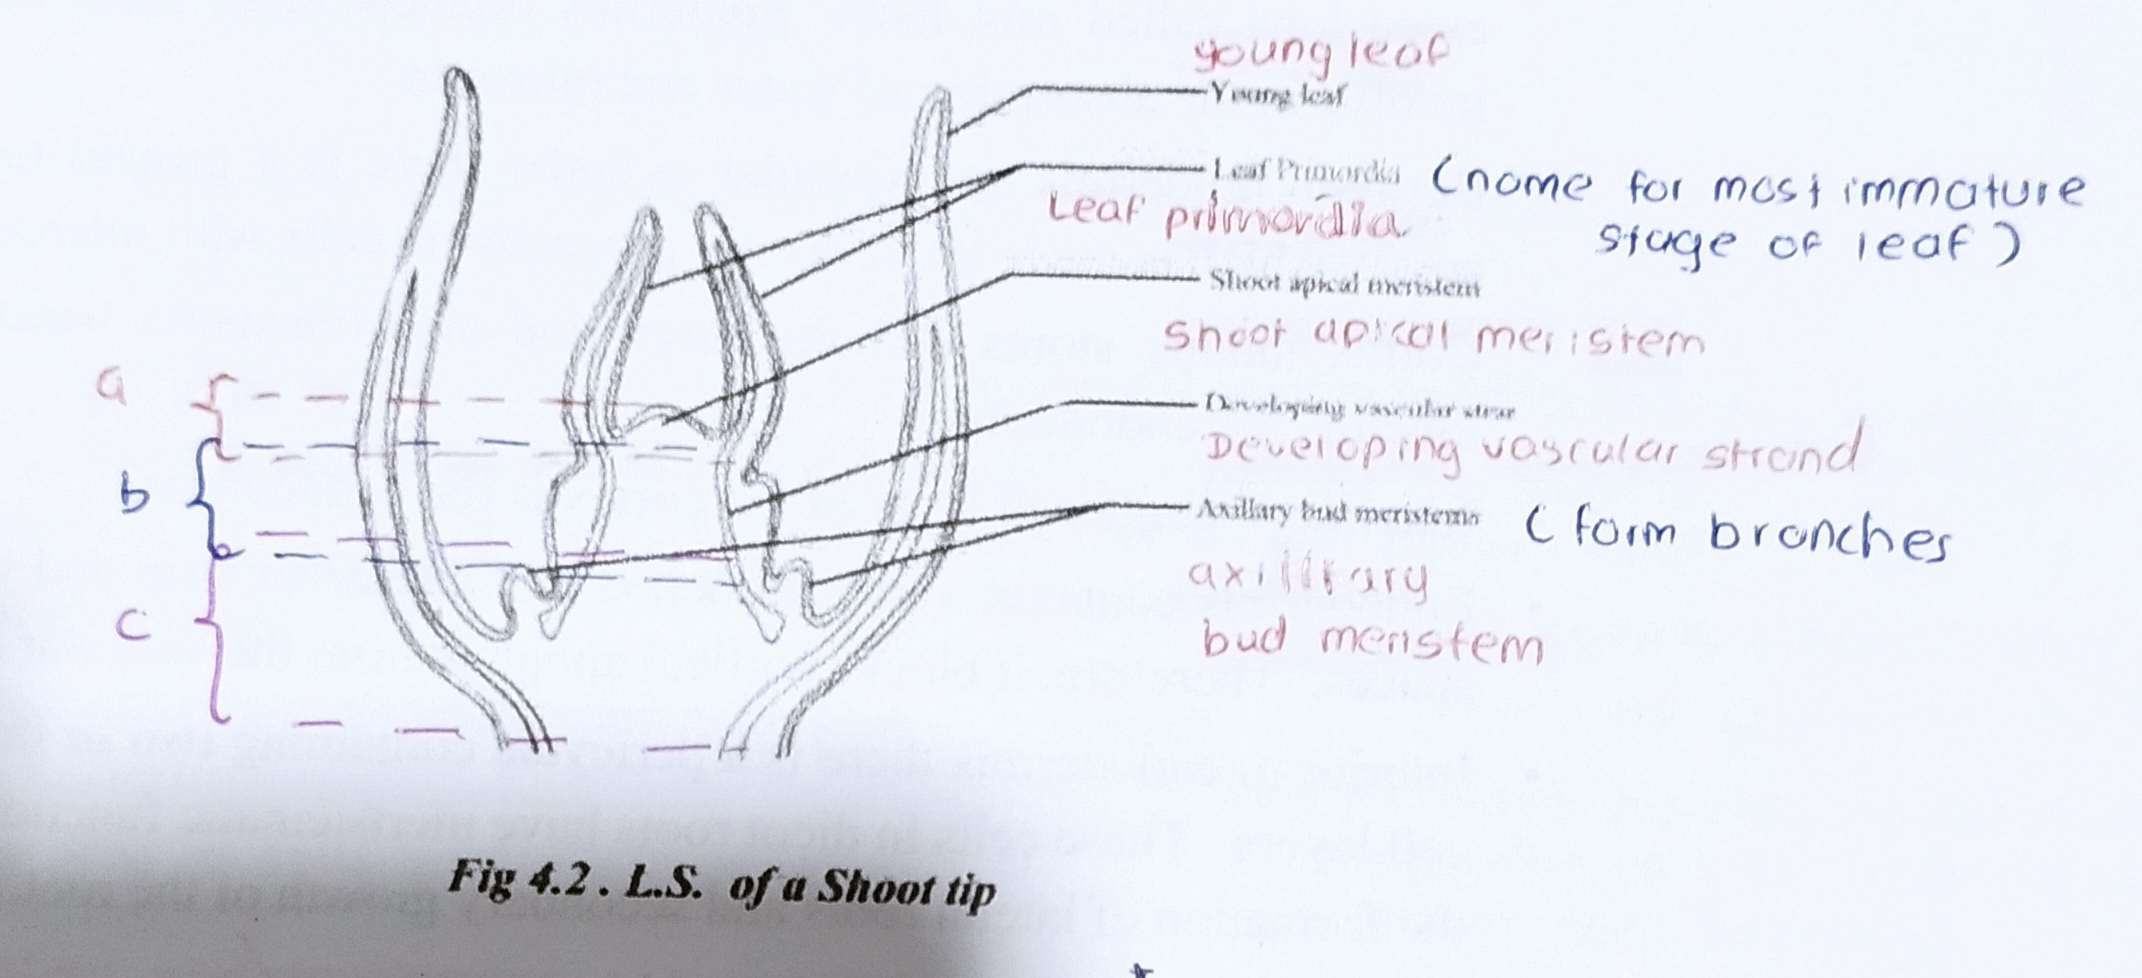 young leaf
Young leaf
Leaf Primordia (nome for most immature
Leaf primordia stage of leaf)
Shoot apical meristem
Shoot apical meristem
a
Developing vascular stran
Developing vascular strand
b
Axillary bud meristems ( form branches
axillary
c
bud meristem
Fig 4.2. L.S. of a Shoot tip